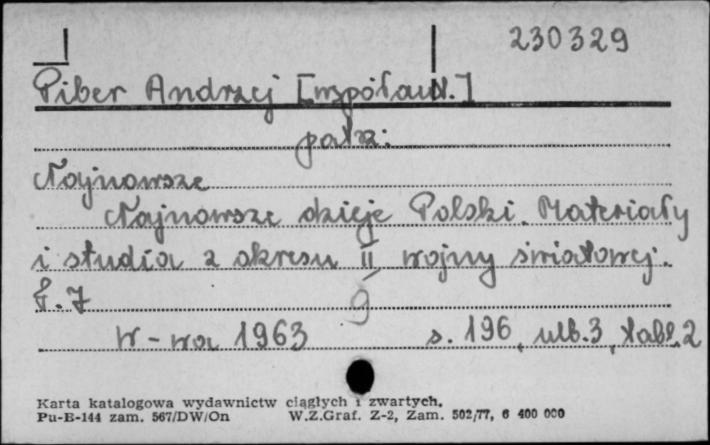 230329
Piber Andrzej [współaut.]
patrz:
Najnowsze
Najnowsze dzieje Polski. Materiały
i studia z okresu II wojny światowej.
t. 7
9
W-wa 1963 s. 196, ulb. 3, tabl. 2
Karta katalogowa wydawnictw ciągłych i zwartych.
Pu-B-144 zam. 567/DW/On W.Z.Graf. Z-2, Zam. 502/77, 6 400 000